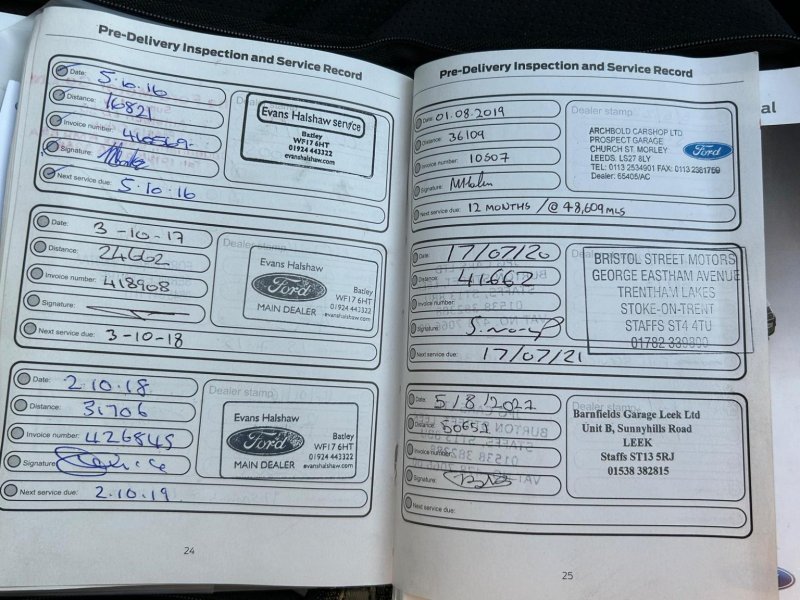 Pre-Delivery Inspection and Service Record
Date: 5.10.16
Distance: 16821
Invoice number:
Signature:
Next service due: 5.10.16
Dealer stamp
Evans Halshaw service
Batley
WF17 6HT
01924 443322
evanshalshaw.com
Date: 3-10-17
Distance: 24662
Invoice number: 418908
Signature:
Next service due: 3-10-18
Dealer stamp
Evans Halshaw
Ford
MAIN DEALER
Batley
WF17 6HT
01924 443322
evanshalshaw.com
Date: 2.10.18
Distance: 31706
Invoice number: 426845
Signature:
Next service due: 2.10.19
Dealer stamp
Evans Halshaw
Ford
MAIN DEALER
Batley
WF17 6HT
01924 443322
evanshalshaw.com
24
Pre-Delivery Inspection and Service Record
Date: 01.08.2019
Distance: 36109
Invoice number: 10507
Signature:
Next service due: 12 MONTHS / @ 48,609 MLS
Dealer stamp
ARCHBOLD CARSHOP LTD
PROSPECT GARAGE
CHURCH ST. MORLEY
LEEDS. LS27 8LY
TEL: 0113 2534901 FAX: 0113 2381759
Dealer: 65405/AC
Ford
Date: 17/07/20
Distance: 41662
Invoice number:
Signature:
Next service due: 17/07/21
BRISTOL STREET MOTORS
GEORGE EASTHAM AVENUE
TRENTHAM LAKES
STOKE-ON-TRENT
STAFFS ST4 4TU
Date: 5/8/2022
Distance:
Invoice number:
Signature:
Next service due:
Dealer stamp
Barnfields Garage Leek Ltd
Unit B, Sunnyhills Road
LEEK
Staffs ST13 5RJ
01538 382815
25
al